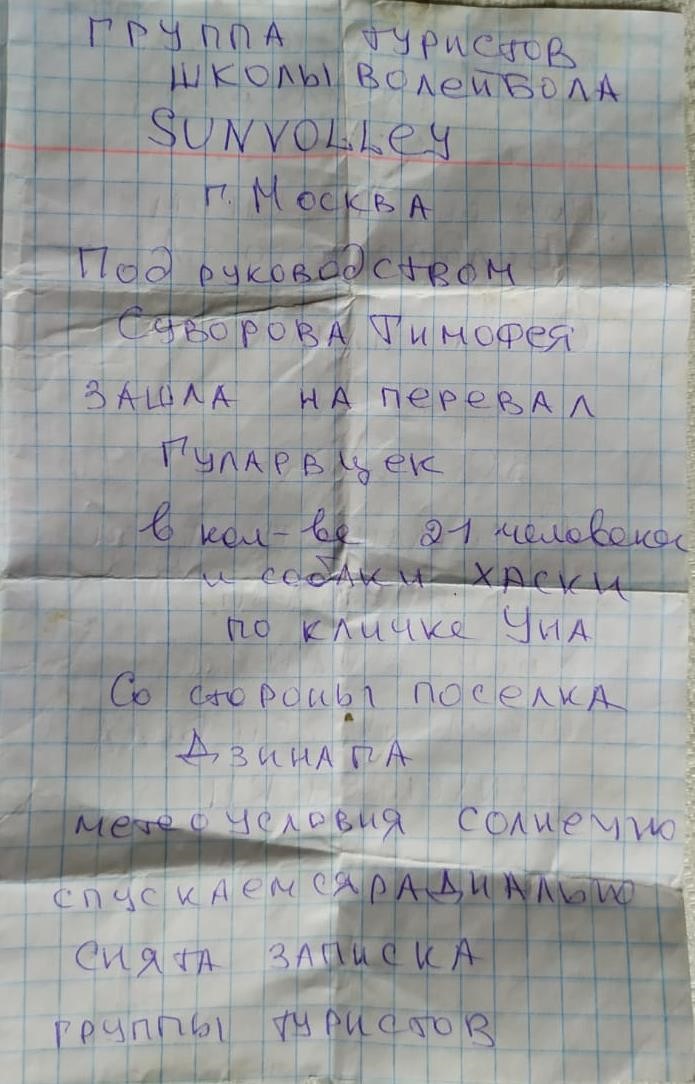 ГРУППА ТУРИСТОВ
ШКОЛЫ ВОЛЕЙБОЛА
SUNVOLLEY
г. МОСКВА
Под руководством
Суворова Тимофея
ЗАШЛА НА ПЕРЕВАЛ
Гуларвцек
в кол-ве 21 человека
и собаки ХАСКИ
по кличке Уна
Со стороны поселка
Дзинага
метеоусловия солнечно
спускаемся радиально
снята записка
группы туристов